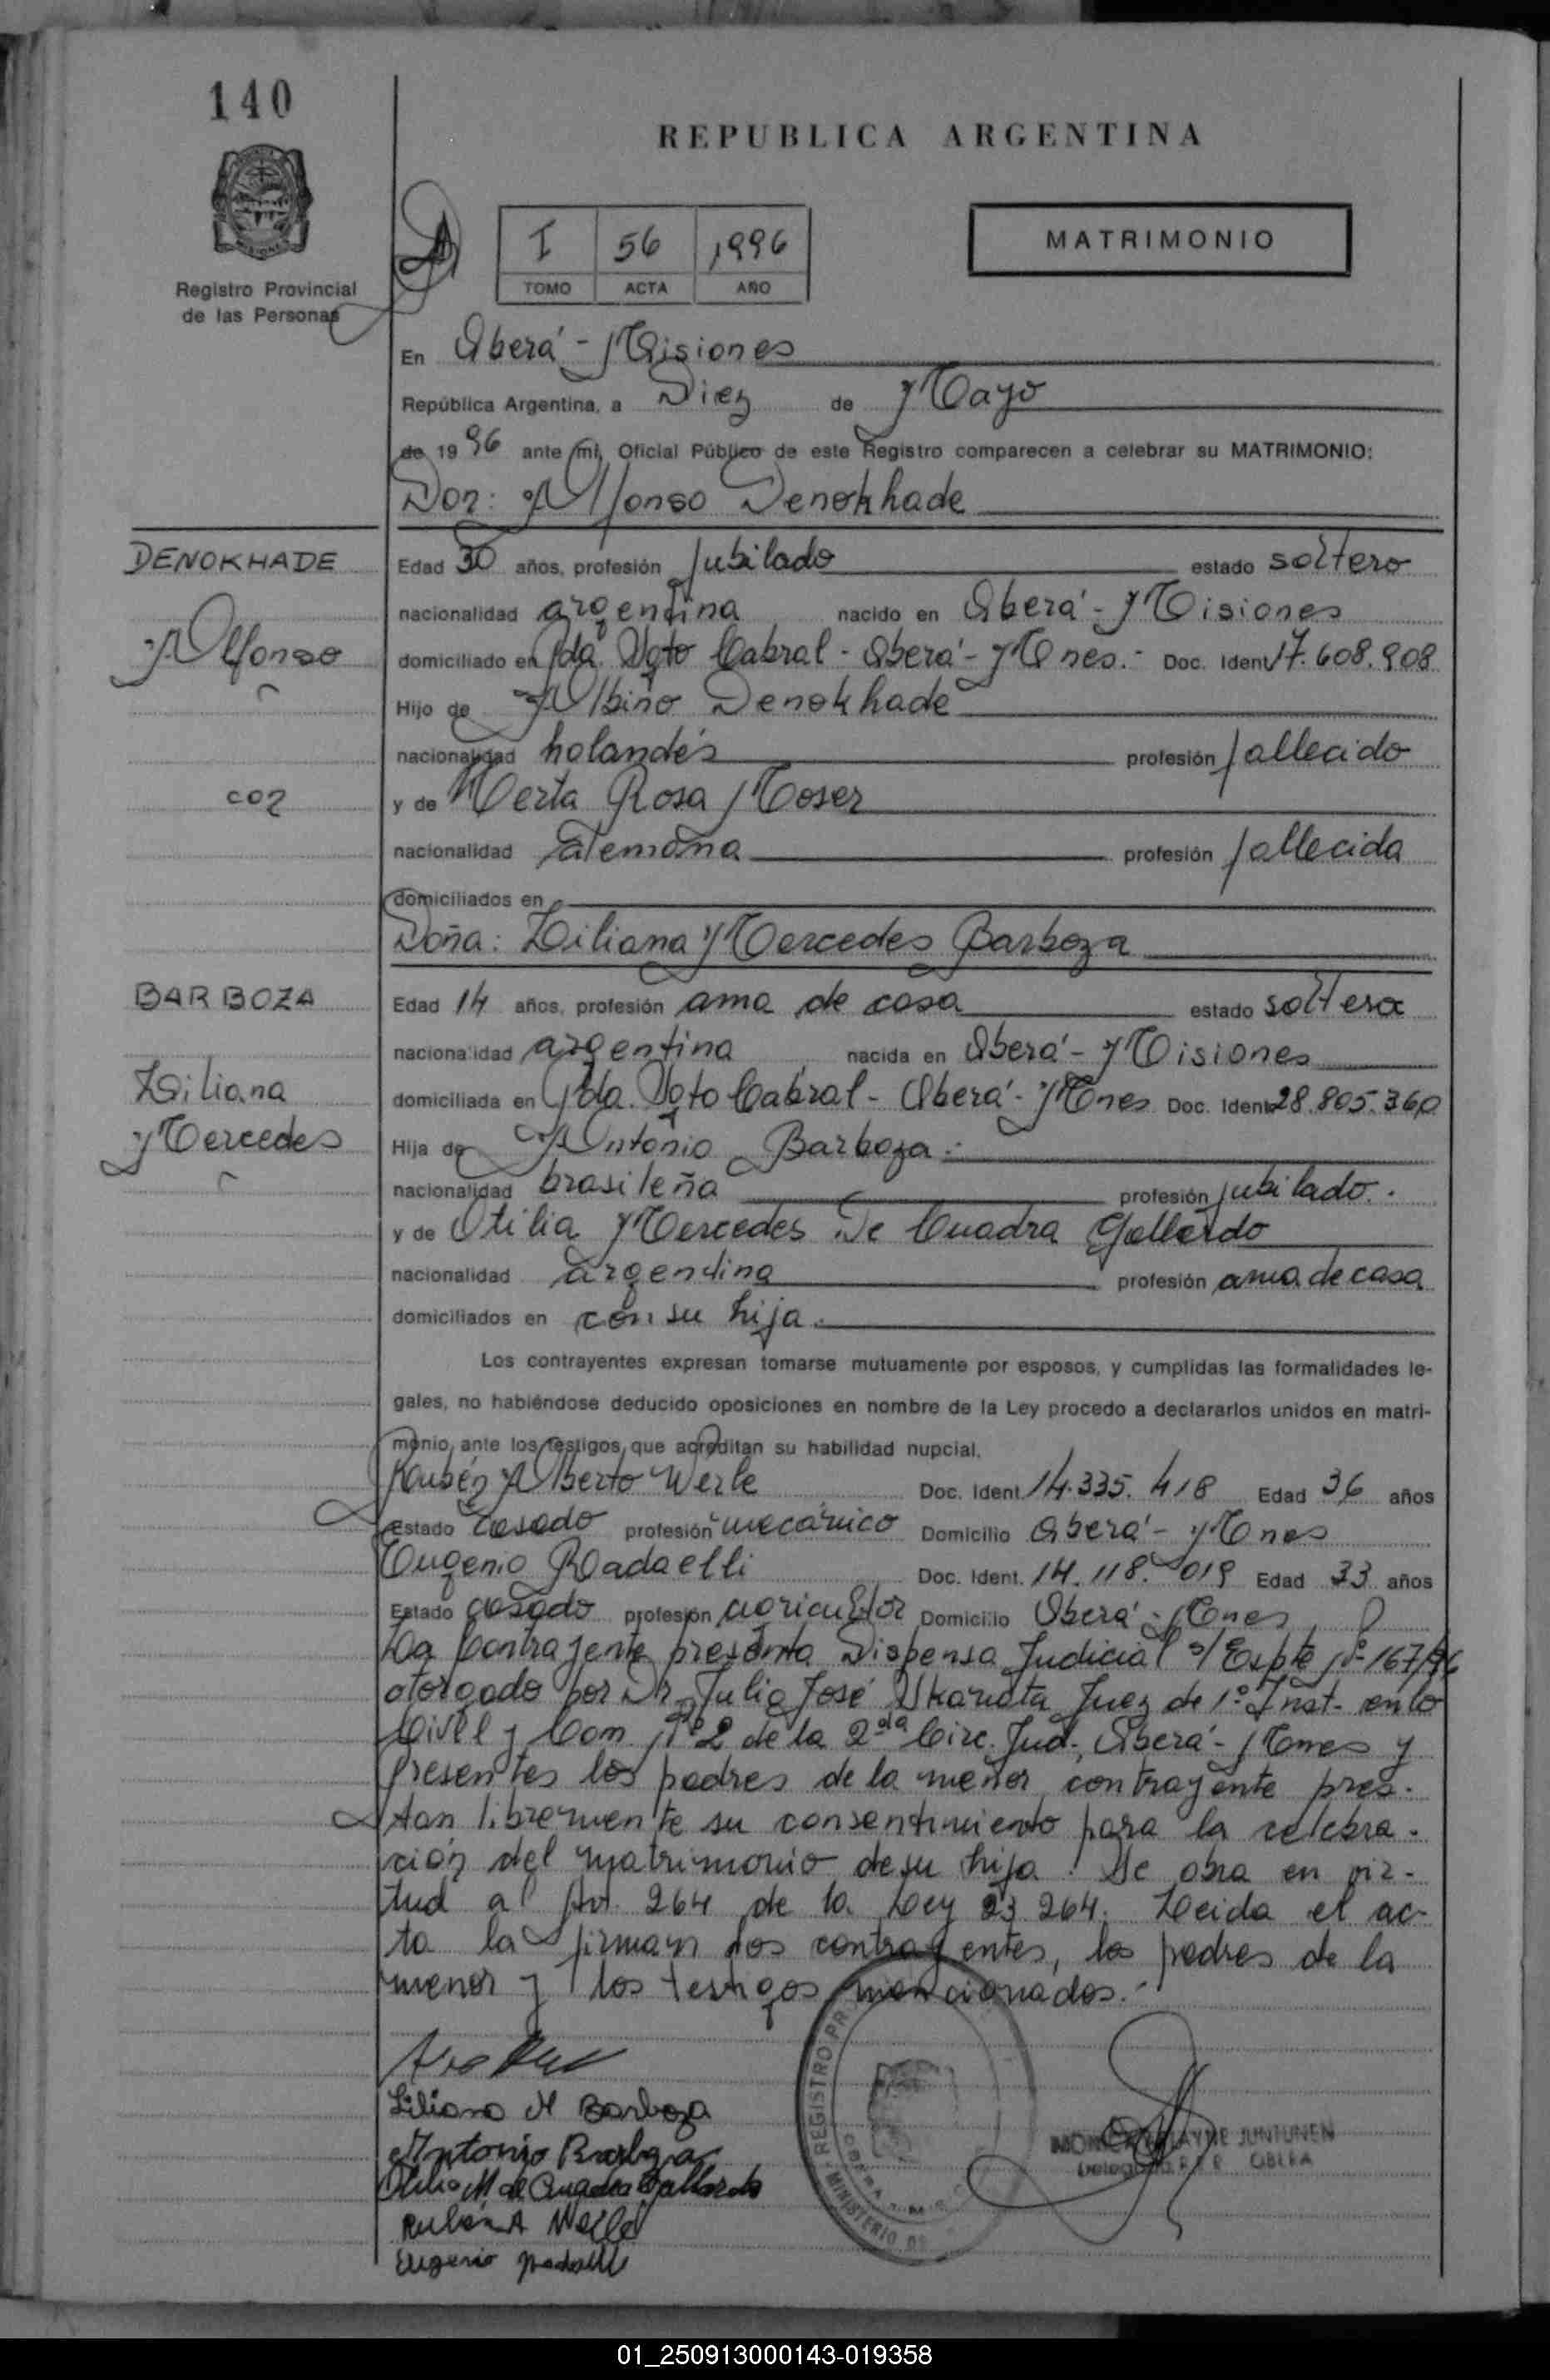 140
REPUBLICA ARGENTINA
Registro Provincial
de las Personas
I 56 1996
TOMO ACTA AÑO
MATRIMONIO
En Oberá - Misiones
República Argentina, a Diez de Mayo
de 1996 ante mí, Oficial Público de este Registro comparecen a celebrar su MATRIMONIO:
Don: Alfonso Denokhade
DENOKHADE
Alfonso
con
BARBOZA
Liliana
Mercedes
Edad 30 años, profesión Jubilado estado soltero
nacionalidad argentina nacido en Oberá - Misiones
domiciliado en Pda. Sgto Cabral - Oberá - Mnes.- Doc. Ident 17.608.908
Hijo de Albino Denokhade
nacionalidad holandés profesión fallecido
y de Herta Rosa Moser
nacionalidad alemana profesión fallecida
domiciliados en
Doña: Liliana Mercedes Barboza
Edad 14 años, profesión ama de casa estado soltera
nacionalidad argentina nacida en Oberá - Misiones
domiciliada en Pda. Sgto Cabral - Oberá - Mnes Doc. Ident 28.805.360
Hija de Antonio Barboza.-
nacionalidad brasileña profesión jubilado.
y de Otilia Mercedes De Cuadra Gallardo
nacionalidad argentina profesión ama de casa
domiciliados en con su hija.
Los contrayentes expresan tomarse mutuamente por esposos, y cumplidas las formalidades le-
gales, no habiéndose deducido oposiciones en nombre de la Ley procedo a declararlos unidos en matri-
monio, ante los testigos, que acreditan su habilidad nupcial.
Rubén Alberto Werle Doc. Ident 14.335.418 Edad 36 años
Estado casado profesión mecánico Domicilio Oberá - Mnes
Eugenio Radaelli Doc. Ident. 14.118.019 Edad 33 años
Estado casado profesión agricultor Domicilio Oberá - Mnes
La contrayente presenta Dispensa Judicial s/ Expte Nº 167/96
otorgado por Dr. Julio José Juez de 1º Inst. en lo
Civil y Com. Nº 2 de la 2da Circ. Jud., Oberá - Mnes y
presentes los padres de la menor contrayente pres-
tan libremente su consentimiento para la celebra-
ción del matrimonio de su hija. Se obra en vir-
tud al Art. 264 de la Ley 23.264. Leida el ac-
ta la firman los contrayentes, los padres de la
menor y los testigos mencionados.-
Liliana M Barboza
Antonio Barboza
Otilia M de Cuadra Gallardo
Rubén A Werle
Eugenio Radaelli
REGISTRO PR
MINISTERIO DE
JUNTUNEN
Delegada R.P.P. OBERA
01_250913000143-019358